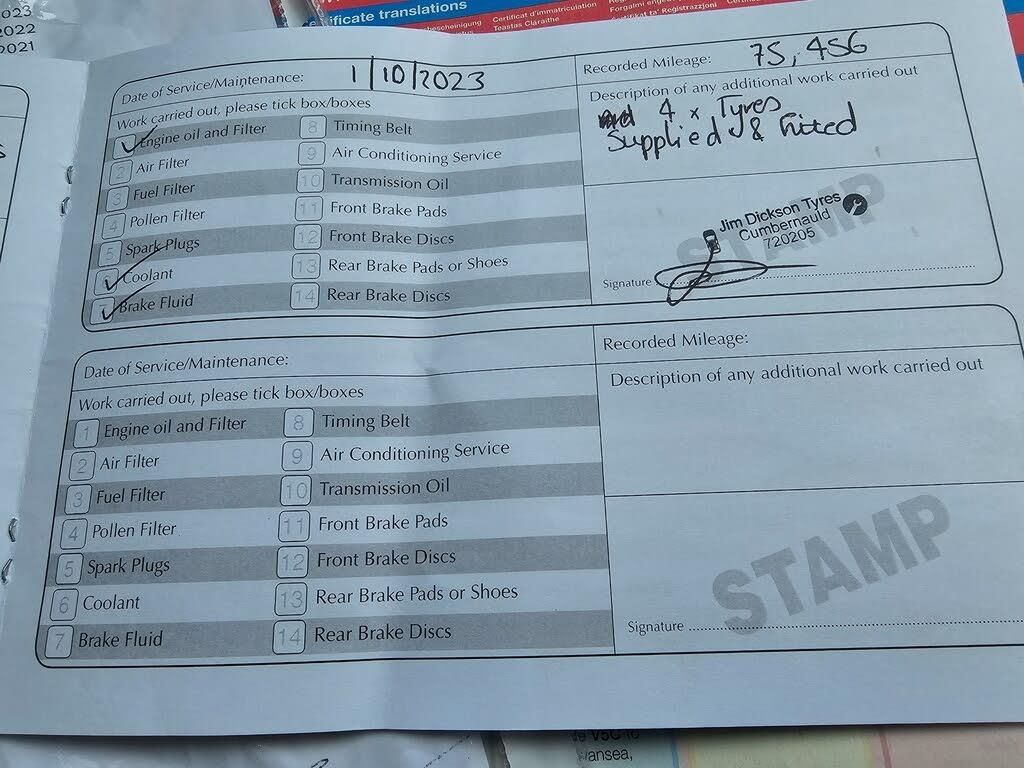 023
2022
2021
ificate translations
bescheinigung
Certificat d'immatriculation
Teastas Cláraithe
Forgalmi enged
Ċertifikat ta' Reġistrazzjoni
Date of Service/Maintenance: 1/10/2023
Recorded Mileage: 75,456
Work carried out, please tick box/boxes
Description of any additional work carried out
4 x Tyres
Supplied & fitted
Engine oil and Filter
2 Air Filter
3 Fuel Filter
4 Pollen Filter
5 Spark Plugs
Coolant
7 Brake Fluid
8 Timing Belt
9 Air Conditioning Service
10 Transmission Oil
11 Front Brake Pads
12 Front Brake Discs
13 Rear Brake Pads or Shoes
14 Rear Brake Discs
STAMP
Jim Dickson Tyres
Cumbernauld
720205
Signature
Date of Service/Maintenance:
Recorded Mileage:
Work carried out, please tick box/boxes
Description of any additional work carried out
1 Engine oil and Filter
2 Air Filter
3 Fuel Filter
4 Pollen Filter
5 Spark Plugs
6 Coolant
7 Brake Fluid
8 Timing Belt
9 Air Conditioning Service
10 Transmission Oil
11 Front Brake Pads
12 Front Brake Discs
13 Rear Brake Pads or Shoes
14 Rear Brake Discs
STAMP
Signature
V5C
ansea,